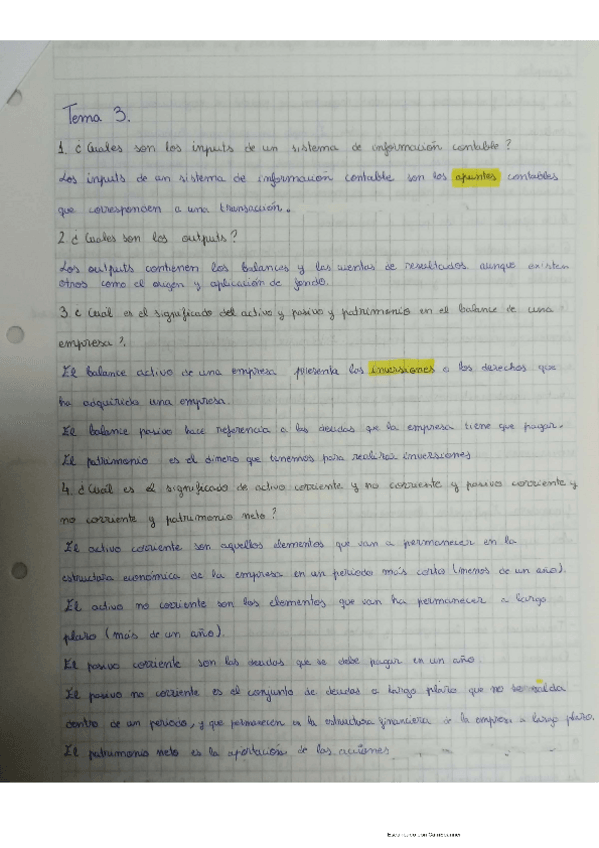 Tema 3.
1 ¿Cuales son los inputs de un sistema de información contable?
Los inputs de un sistema de información contable son los apuntes contables
que corresponden a una transacción.
2 ¿Cuales son los outputs?
Los outputs contienen los balances y las cuentas de resultados aunque existen
otros como el origen y aplicación de fondo.
3. ¿Cual es el significado del activo y pasivo y patrimonio en el balance de una
empresa?.
El balance activo de una empresa presenta las inversiones o los derechos que
ha adquirido una empresa.
El balance pasivo hace referencia a las deudas que la empresa tiene que pagar.
El patrimonio es el dinero que tenemos para realizar inversiones
4. ¿Cual es el significado de activo corriente y no corriente y pasivo corriente y
no corriente y patrimonio neto?
El activo corriente son aquellos elementos que van a permanecer en la
estructura económica de la empresa en un periodo más corto (menos de un año).
El activo no corriente son los elementos que van ha permanecer a largo
plazo (más de un año).
El pasivo corriente son las deudas que se debe pagar en un año.
El pasivo no corriente es el conjunto de deudas a largo plazo que no se salda
dentro de un periodo, y que permanecen en la estructura financiera de la empresa a largo plazo.
El patrimonio neto es la aportación de las acciones